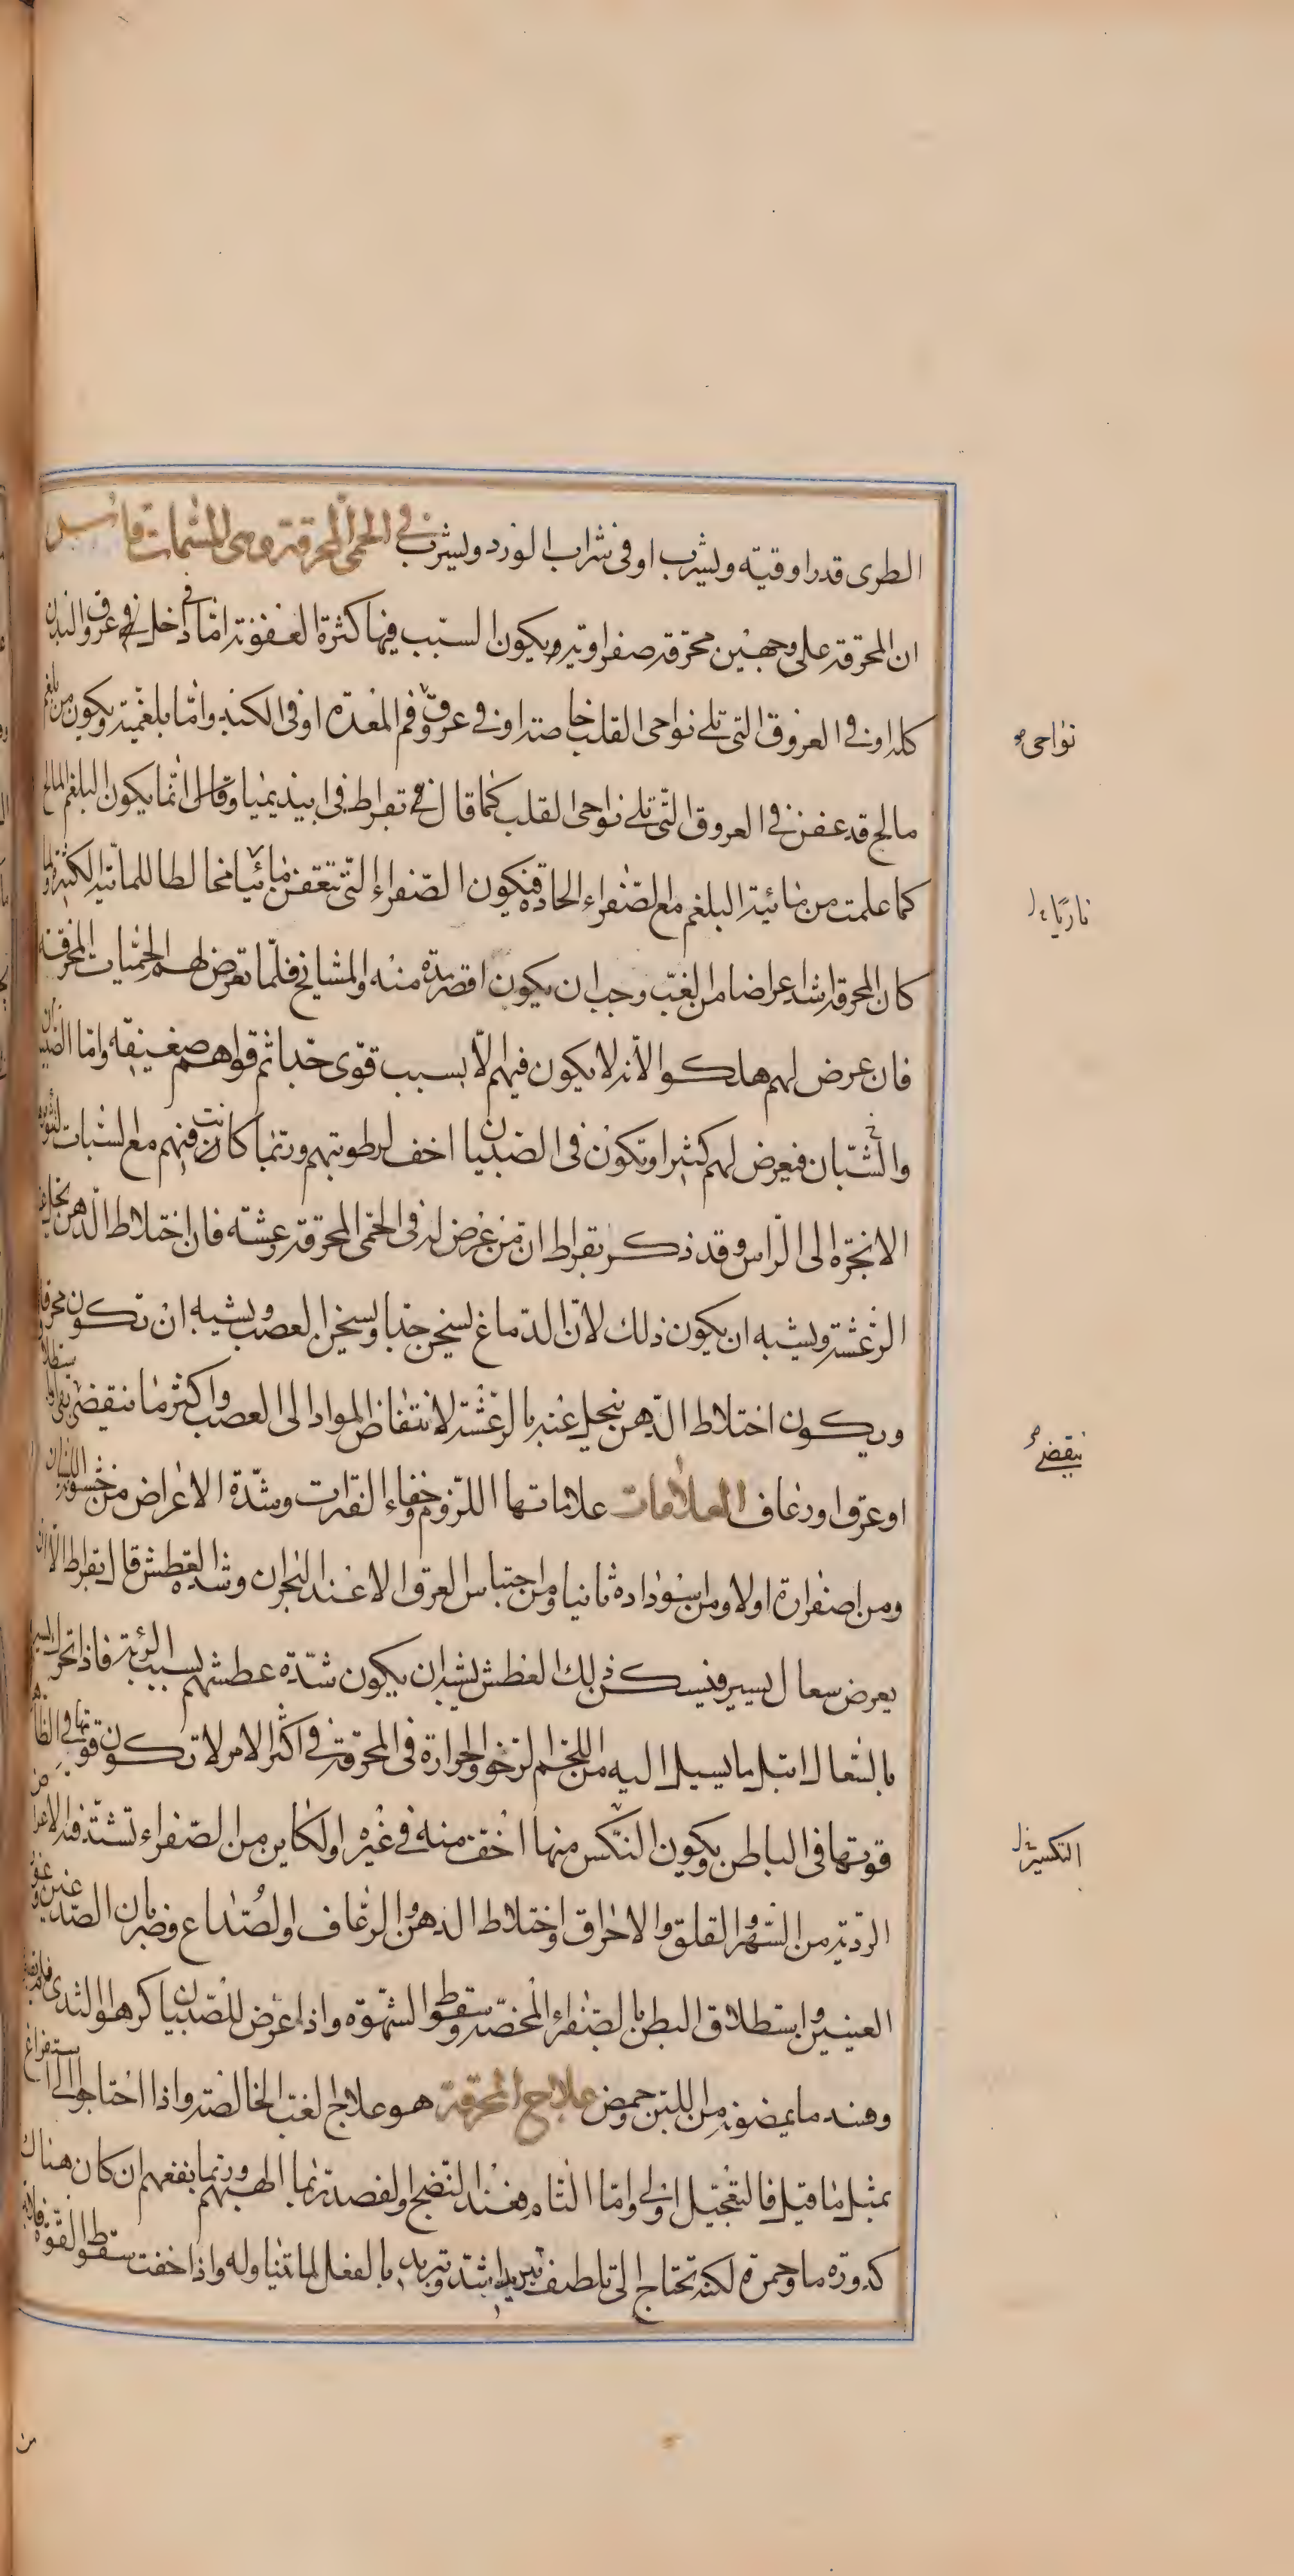 الطرى قدر اوقيته ويشرب او فى شراب الورد ويشرب فى الحمى المحرقة وهى المسماة قاوسوس
ان المحرقة على وجهين محرقة صفراوية ويكون السبب فيها كثرة العفونة اما فى داخل فى عروق البدن
كله او فى العروق التى تلى نواحى القلب خاصة او فى عروق فم المعدة او فى الكبد واما بلغمية ويكون من بلغم
مالح قد عفن فى العروق التى تلى نواحى القلب كما قال بقراط فى ابيذيميا وقال انما يكون البلغم المالح
كما علمت من مائية البلغم مع الصفراء الحادة فتكون الصفراء التى تتعفن مائيا مخالطا للمائية الكثيرة ولما
كان المحرقة اشد اعراضا من الغب وجب ان يكون اقصر مدة منه والمشايخ فلما تعرض لهم الحميات المحرقة
فان عرض لهم هلكوا لانه لا يكون فيهم الا بسبب قوى جدا ثم قواهم ضعيفة واما الصبيان
والشبان فيعرض لهم كثيرا وتكون فى الصبيان اخف لرطوبتهم وربما كانت فيهم مع السبات لتثوير
الابخرة الى الراس وقد ذكر بقراط ان من عرض له فى الحمى المحرقة رعشة فان اختلاط الذهن يحل عنه
الرعشة ويشبه ان يكون ذلك لان الدماغ يسخن جدا ويسخن العصب ويشبه ان تكون محرقة
ويكون اختلاط الذهن ينحل عنه بالرعشة لانتفاض المواد الى العصب واكثر ما ينقضى بقى او استطلاق
او عرق او رعاف العلامات علاماتها اللزوم وخفاء الفترات وشدة الاعراض من خشونة اللسان
ومن اصفراره اولا ومن اسوداده ثانيا ومن احتباس العرق الا عند البحران وشدة العطش قال بقراط الا ان
يعرض سعال يسير فيسكن ذلك العطش يشبه ان يكون شدة عطشهم بسبب الرئة فاذا تحرك يسيرا
بالسعال ابتل بما يسيل اليه من اللحم الرخو والحرارة فى المحرقة فى اكثر الامر لا تكون قوتها فى الظاهر
قوتها فى الباطن ويكون النكس منها اخف منه فى غيره او لكاين من الصفراء تشتد فيه الاعراض
الردية من السهر والقلق والاحراق واختلاط الذهن والرعاف والصداع وضربان الصدغين وغور
العينين واستطلاق البطن بالصفراء المحضة وسقوط الشهوة واذا عرض للصبيان كرهوا الثدى فلم يقبلوه
وفسد ما يمصونه من اللبن وحمض علاج المحرقة هو علاج الغب الخالصة واذا احتاجوا الى استفراغ
بمثل ما قيل فالتعجيل اولى واما التام فعند النضج والفصد ربما الهبهم وربما نفعهم ان كان هناك
كدورة ما وحمرة لكنه تحتاج الى تلطف تبريد اشد وتبريد بالفعل لما تناوله واذا خفت سقوط القوة فلا بد
نواحى
ناريا
ينقضى
التكسير
من